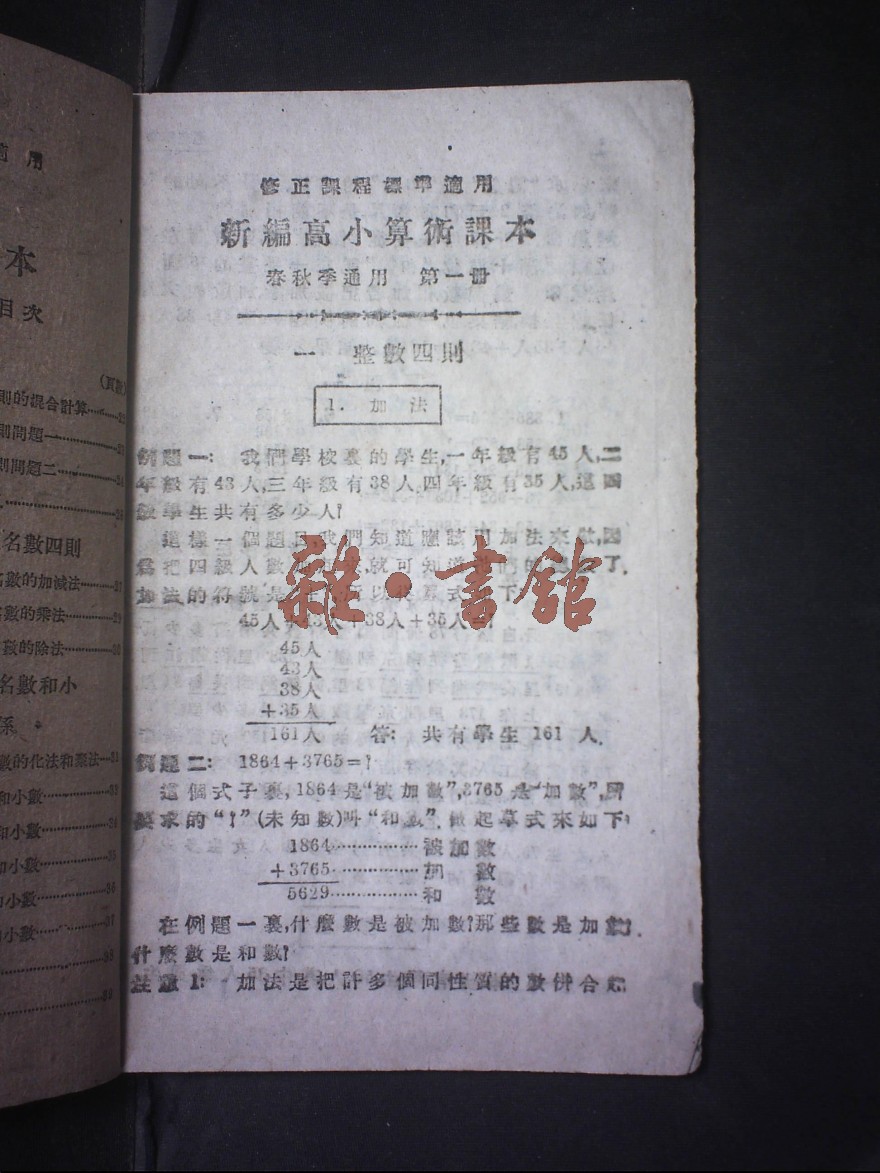 適用
本
目次
(頁數)
則的混合計算
則問題一
則問題二
名數四則
名數的加減法
名數的乘法
名數的除法
名數和小
係
數的化法和聚法
和小數
和小數
和小數
和小數
和小數
修正課程標準適用
新編高小算術課本
春秋季通用 第一册
一 整數四則
1. 加法
例題一: 我們學校裏的學生,一年級有45人,二
年級有43人,三年級有38人,四年級有35人,這四
級學生共有多少人?
這樣一個題目,我們知道應該用加法來做,因
爲把四級人數加起來,就可知道他們的總數了.
加法的符號是 所以 算式 下
45人+43人+38人+35人=?
45人
43人
38人
+35人
161人 答: 共有學生 161 人.
例題二: 1864+3765=?
這個式子裏, 1864 是“被加數”, 3765 是“加數”, 所
要求的“?”(未知數)叫“和數”. 做起草式來如下:
1864……被加數
+3765……加數
5629……和數
在例題一裏,什麼數是被加數?那些數是加數?
什麼數是和數?
註釋 1: 加法是把許多個同性質的數併合起
雜·書館